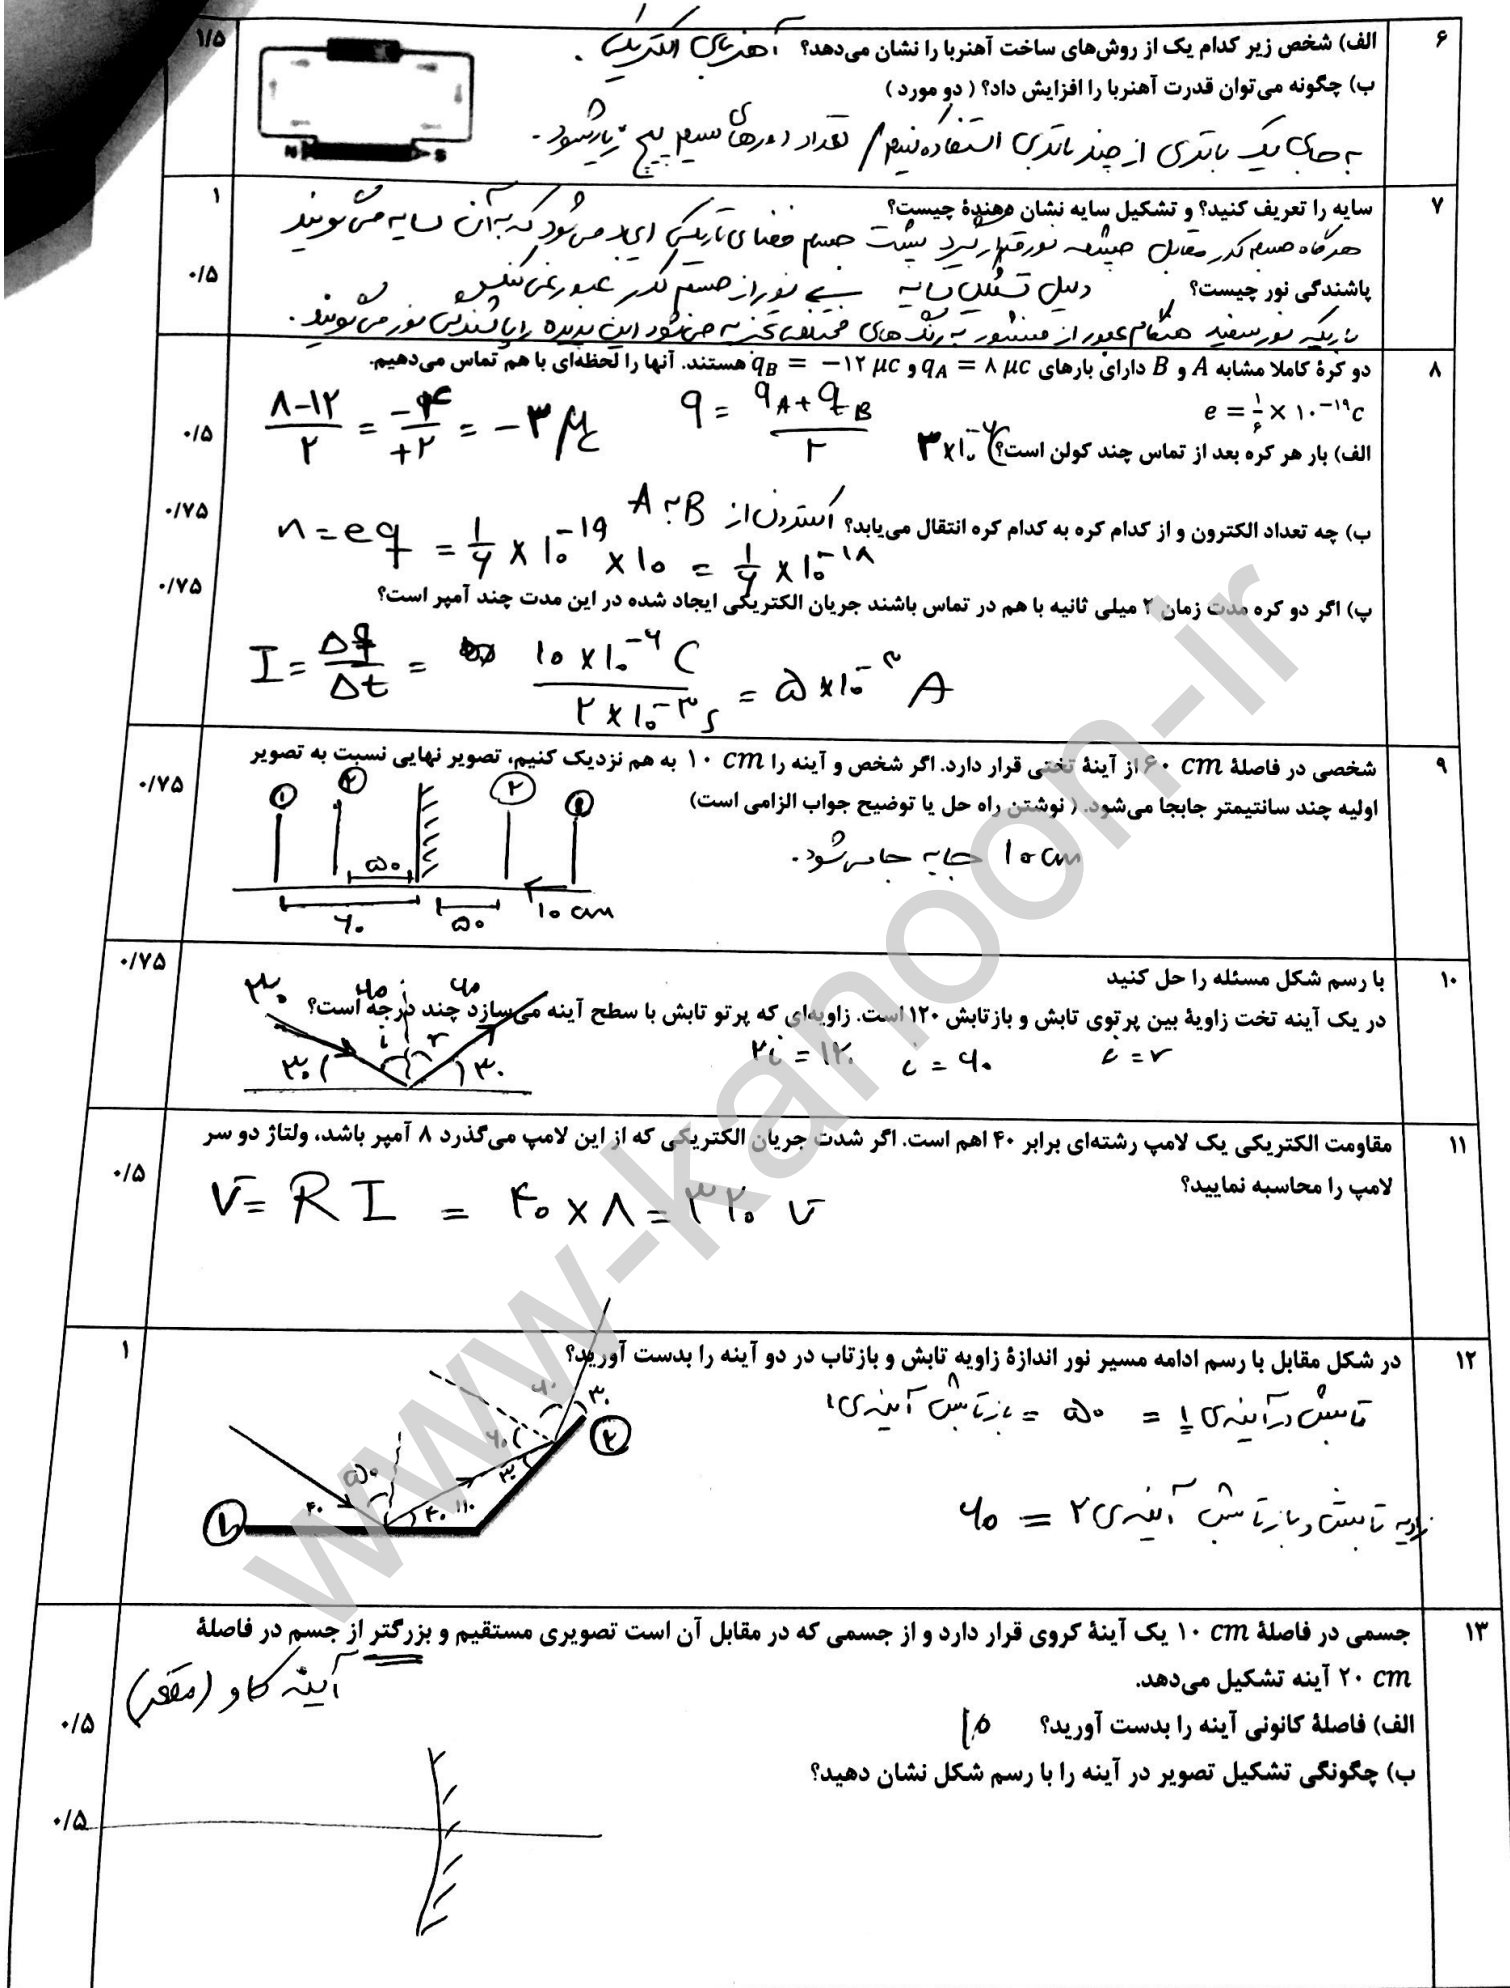 ۶
الف) شخص زیر کدام یک از روش‌های ساخت آهنربا را نشان می‌دهد؟ آهنربای الکتریکی.
۱/۵
ب) چگونه می‌توان قدرت آهنربا را افزایش داد؟ ( دو مورد )
به جای یک باتری از چند باتری استفاده کنیم / تعداد دورهای سیم پیچ زیاد شود.
N S
۷
سایه را تعریف کنید؟ و تشکیل سایه نشان دهندهٔ چیست؟
۱
هرگاه جسم کدر مقابل چشمه نور قرار گیرد پشت جسم فضای تاریکی ایجاد می شود که به آن سایه می گویند
پاشندگی نور چیست؟
دلیل تشکیل سایه
نور از جسم کدر عبور نمی کند
۰/۵
باریکه نور سفید هنگام عبور از منشور به رنگ های مختلف تجزیه می شود این پدیده را پاشندگی نور می گویند.
۸
دو کرهٔ کاملا مشابه A و B دارای بارهای qA = ۸ μc و qB = −۱۲ μc هستند. آنها را لحظه‌ای با هم تماس می‌دهیم.
e = ۱/۶ × ۱۰^−۱۹ c
q = (qA + qB)/۲
(۸−۱۲)/۲ = −۴/+۲ = −۳ μc
الف) بار هر کره بعد از تماس چند کولن است؟ ۳×۱۰^−۶ C
۰/۵
ب) چه تعداد الکترون و از کدام کره به کدام کره انتقال می‌یابد؟ الکترون از B به A
۰/۷۵
n = eq = ۱/۶ × ۱۰^−۱۹ × ۱۰ = ۱/۶ × ۱۰^−۱۸
پ) اگر دو کره مدت زمان ۲ میلی ثانیه با هم در تماس باشند جریان الکتریکی ایجاد شده در این مدت چند آمپر است؟
۰/۷۵
I = Δq/Δt = ۱۰×۱۰^−۶ C / ۲×۱۰^−۳ s = ۵×۱۰^−۳ A
۹
شخصی در فاصلهٔ ۶۰ cm از آینهٔ تختی قرار دارد. اگر شخص و آینه را ۱۰ cm به هم نزدیک کنیم، تصویر نهایی نسبت به تصویر
۰/۷۵
اولیه چند سانتیمتر جابجا می‌شود. ( نوشتن راه حل یا توضیح جواب الزامی است)
۱۰ cm جا به جا می شود.
۱ ۲ ۲ ۱
۵۰
۶۰ ۵۰ ۱۰ cm
۱۰
با رسم شکل مسئله را حل کنید
۰/۷۵
در یک آینه تخت زاویهٔ بین پرتوی تابش و بازتابش ۱۲۰ است. زاویه‌ای که پرتو تابش با سطح آینه می‌سازد چند درجه است؟
۳۰ ۶۰ ۶۰
i r
۳۰ ۳۰
i = r
i = ۶۰
۲i = ۱۲۰
۱۱
مقاومت الکتریکی یک لامپ رشته‌ای برابر ۴۰ اهم است. اگر شدت جریان الکتریکی که از این لامپ می‌گذرد ۸ آمپر باشد، ولتاژ دو سر
لامپ را محاسبه نمایید؟
۰/۵
V = R I = ۴۰ × ۸ = ۳۲۰ V
۱۲
در شکل مقابل با رسم ادامه مسیر نور اندازهٔ زاویه تابش و بازتاب در دو آینه را بدست آورید؟
۱
تابش در آینه ی ۱ = ۵۰ = بازتابش آینه ی ۱
زاویه تابش و بازتابش آینه ی ۲ = ۶۰
۶۰ ۳۰
۶۰ ۲
۵۰ ۳۰
۱ ۴۰ ۴۰ ۱۱۰
۱۳
جسمی در فاصلهٔ ۱۰ cm یک آینهٔ کروی قرار دارد و از جسمی که در مقابل آن است تصویری مستقیم و بزرگتر از جسم در فاصلهٔ
۲۰ cm آینه تشکیل می‌دهد.
آینه کاو (مقعر)
الف) فاصلهٔ کانونی آینه را بدست آورید؟
۰/۵
ب) چگونگی تشکیل تصویر در آینه را با رسم شکل نشان دهید؟
۰/۵
www-kanoon-ir